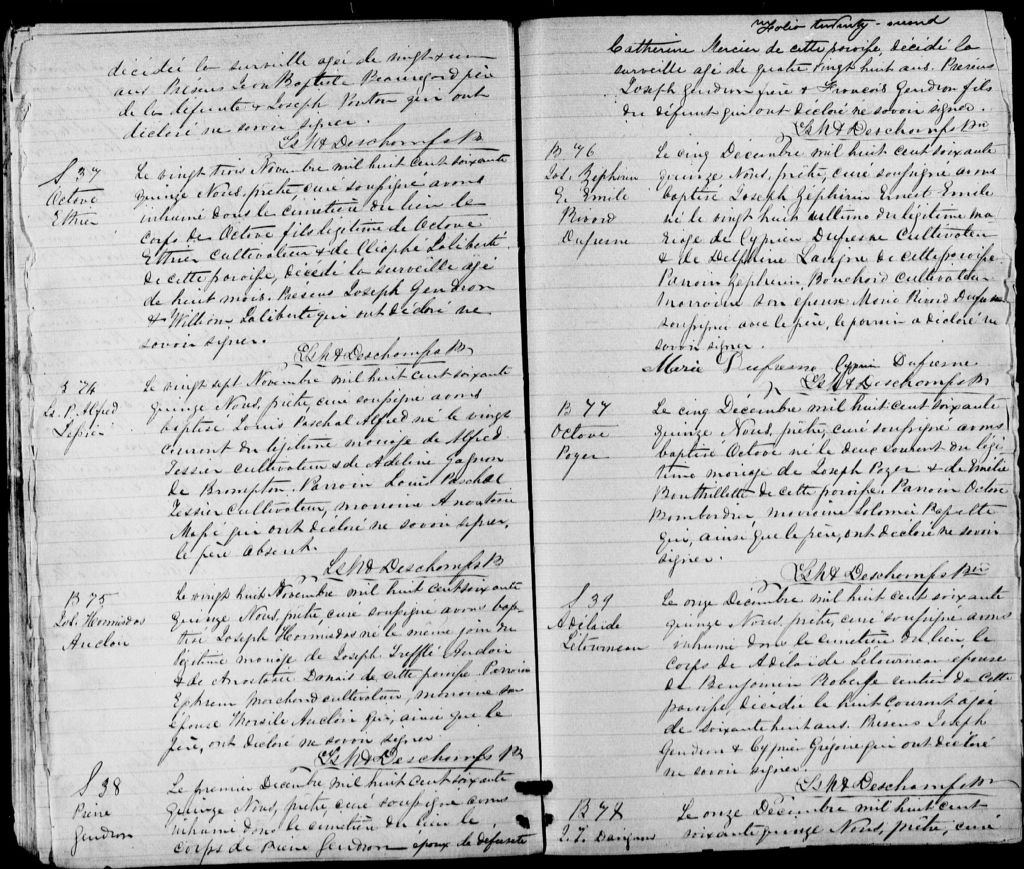 décidée la surveille agée de vingt & un
ans Présens Jean Baptiste Beauregard père
de la défunte & Joseph Ponton qui ont
déclaré ne savoir signer.
Ls M & Deschamps Ptr
S 37
Octave
Ethier
Le vingt trois Novembre mil huit cent soixante
quinze Nous, prêtre, curé soussigné avons
inhumé dans le cimetière du lieu le
corps de Octave fils légitime de Octave
Ethier cultivateur & de Cléophé Laliberté
de cette paroisse, décédé la surveille agé
de huit mois. Présens Joseph Gendron
& William Laliberté qui ont déclaré ne
savoir signer.
Deschamps
B 74
Ls. P. Alfred
Tessier
Le vingt sept Novembre mil huit cent soixante
quinze Nous, prêtre, curé soussigné avons
baptisé Louis Paschal Alfred né le vingt
courant du légitime mariage de Alfred
Tessier cultivateur & de Adeline Gagnon
de Brompton. Parrain Louis Paschal
Tessier cultivateur, marraine Anastasie
qui ont déclaré ne savoir signer,
le père absent.
Deschamps
B 75
Jos. Hormisdas
Auclair
Le vingt huit Novembre mil huit cent soixante
quinze Nous, prêtre, curé soussigné avons bap-
tisé Joseph Hormisdas né le même jour du
légitime mariage de Joseph Trefflé Auclair
& de Anastasie Danais de cette paroisse Parrain
Ephrem Marchand cultivateur, marraine son
épouse Auclair qui, ainsi que le
père, ont déclaré ne savoir signer
Deschamps
S 38
Pierre
Gendron
Le premier Décembre mil huit cent soixante
quinze Nous, prêtre, curé soussigné avons
inhumé dans le cimetière du lieu le
corps de Pierre Gendron époux de défunte
Folio twenty-second
Catherine Mercier de cette paroisse, décidé la
surveille agé de quatre vingt huit ans. Présens
Joseph Gendron frère & François Gendron fils
du défunt qui ont déclaré ne savoir signer.
Deschamps
B 76
Jos. Zéphirin
E. Emile
Rivard
Dufresne
Le cinq Décembre mil huit cent soixante
quinze Nous, prêtre, curé soussigné avons
baptisé Joseph Zéphirin Ernest Emile
né le vingt huit ultimo du légitime ma
riage de Cyprien Dufresne cultivateur
& de Delphine de cette paroisse.
Parrain Zéphirin Bouchard cultivateur
marraine son épouse Marie Rivard Dufresne
soussignée avec le père, le parrain a déclaré ne
savoir signer.
Marie Dufresne Cyprien Dufresne
Deschamps
B 77
Octave
Poyer
Le cinq Décembre mil huit cent soixante
quinze Nous, prêtre, curé soussigné avons
baptisé Octave né le deux courant du légi
time mariage de Joseph Poyer & de Emélie
Bouthillette de cette paroisse. Parrain Octave
Bombardier, marraine Salomée
qui, ainsi que le père, ont déclaré ne savoir
signer.
Deschamps
S 39
Adelaide
Létourneau
Le onze Décembre mil huit cent soixante
quinze Nous, prêtre, curé soussigné avons
inhumé dans le cimetière du lieu le
corps de Adelaïde Létourneau épouse
de Benjamin Roberge rentier de cette
paroisse, décédée le huit courant agée
de soixante huit ans. Présens Joseph
Gendron & Cyprien Grégoire qui ont déclaré
ne savoir signer.
Deschamps
B 78
Le onze Décembre mil huit cent
soixante quinze Nous, prêtre, curé